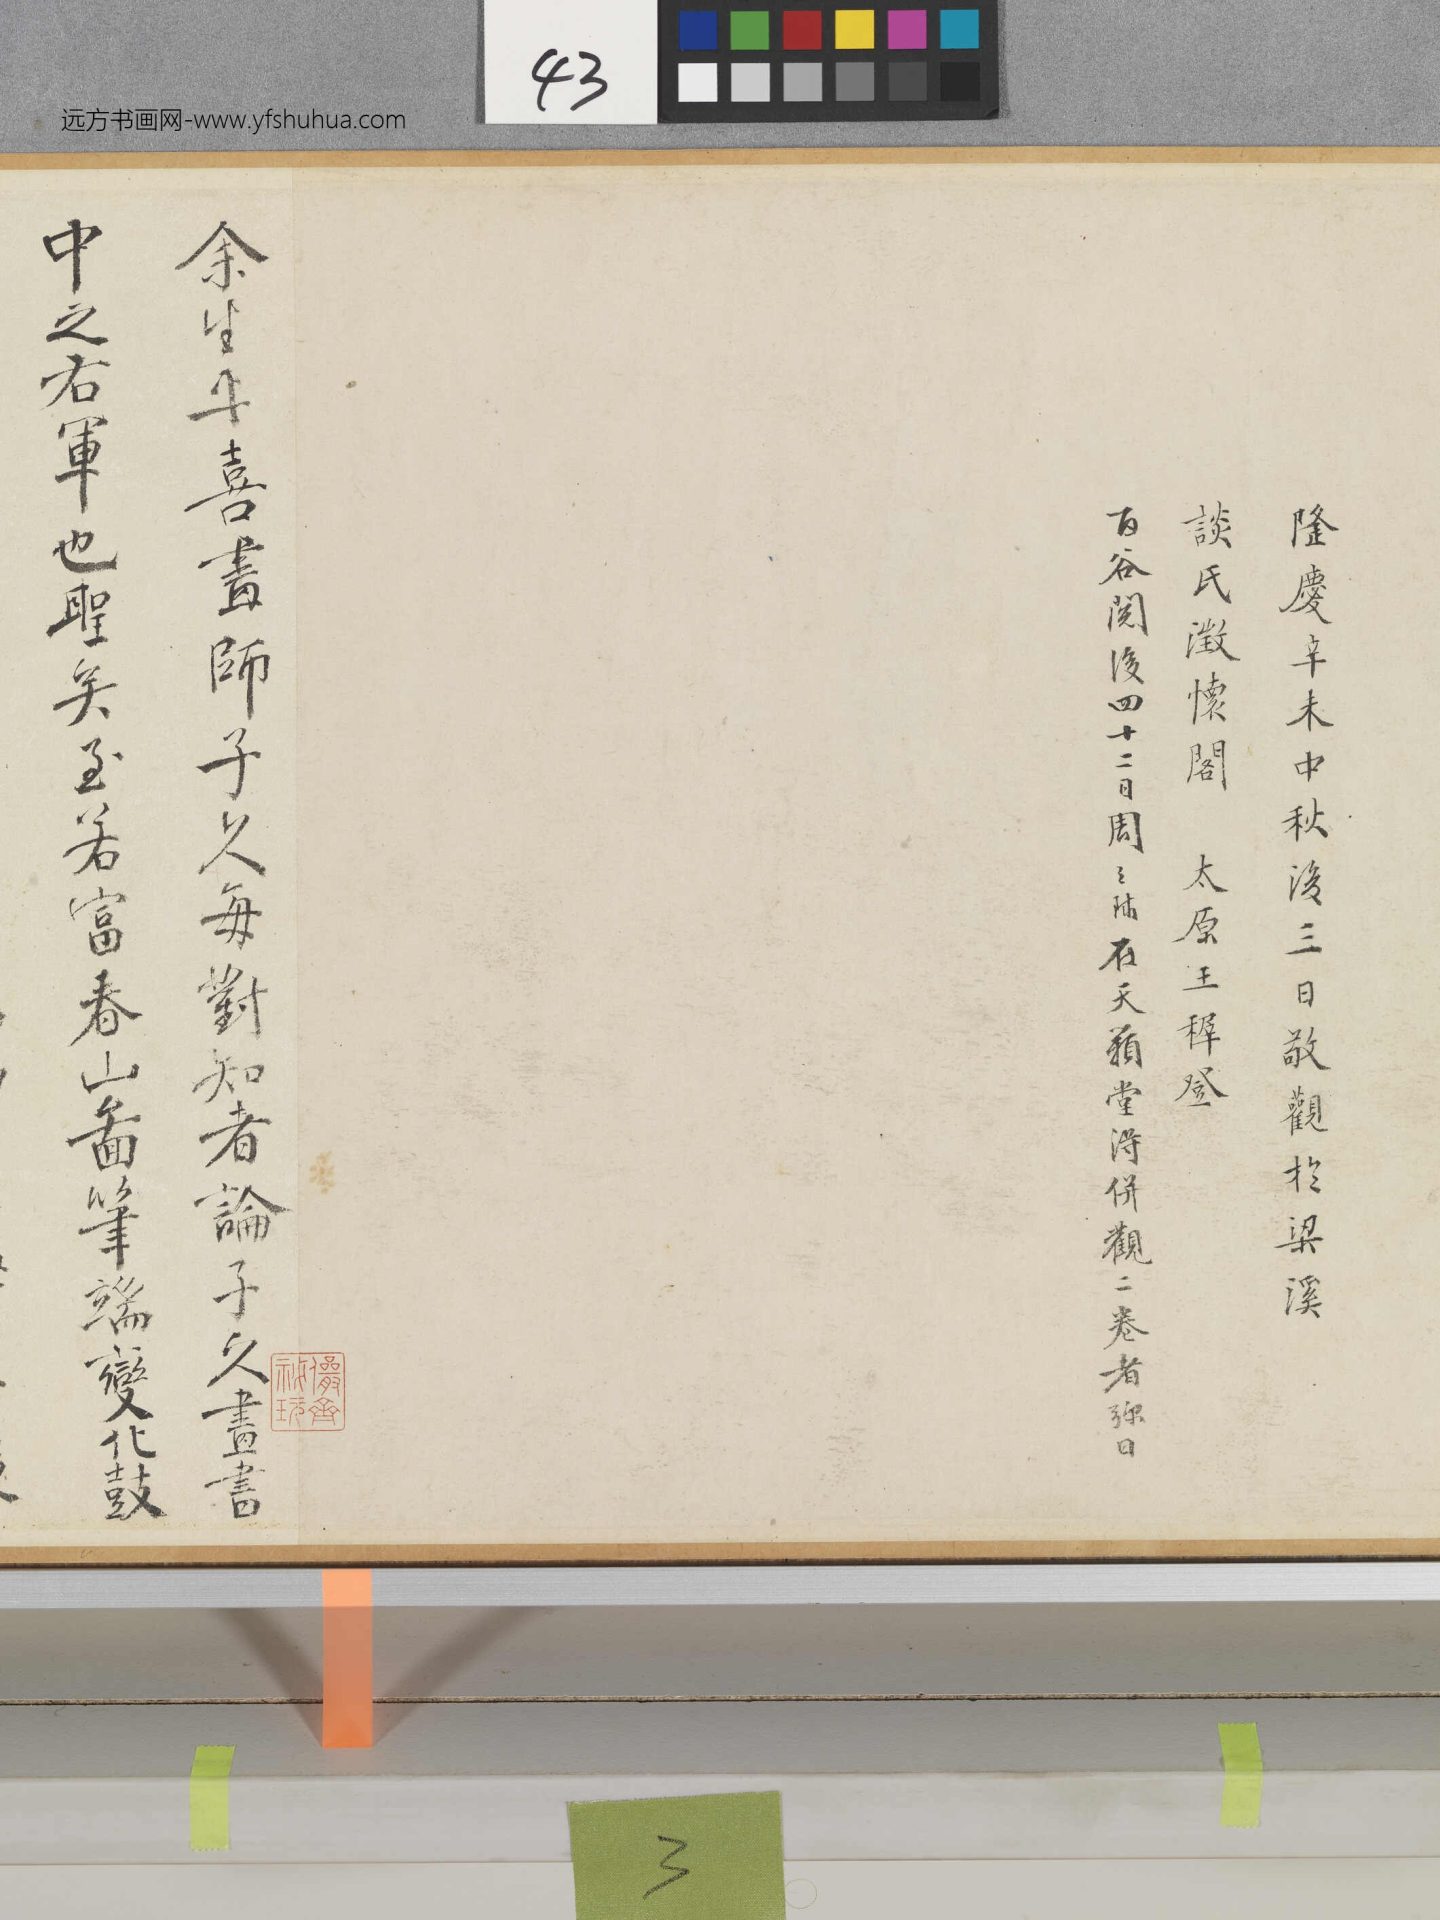 43
远方书画网-www.yfshuhua.com
隆慶辛未中秋後三日敬觀於梁溪
談氏澂懷閣 太原王穉登
百谷閱後四十二日周天球在天籟堂得併觀二卷者弥日
余生平喜畫師子久每對知者論子久畫書
中之右軍也聖矣至若富春山啚筆端變化鼓
3